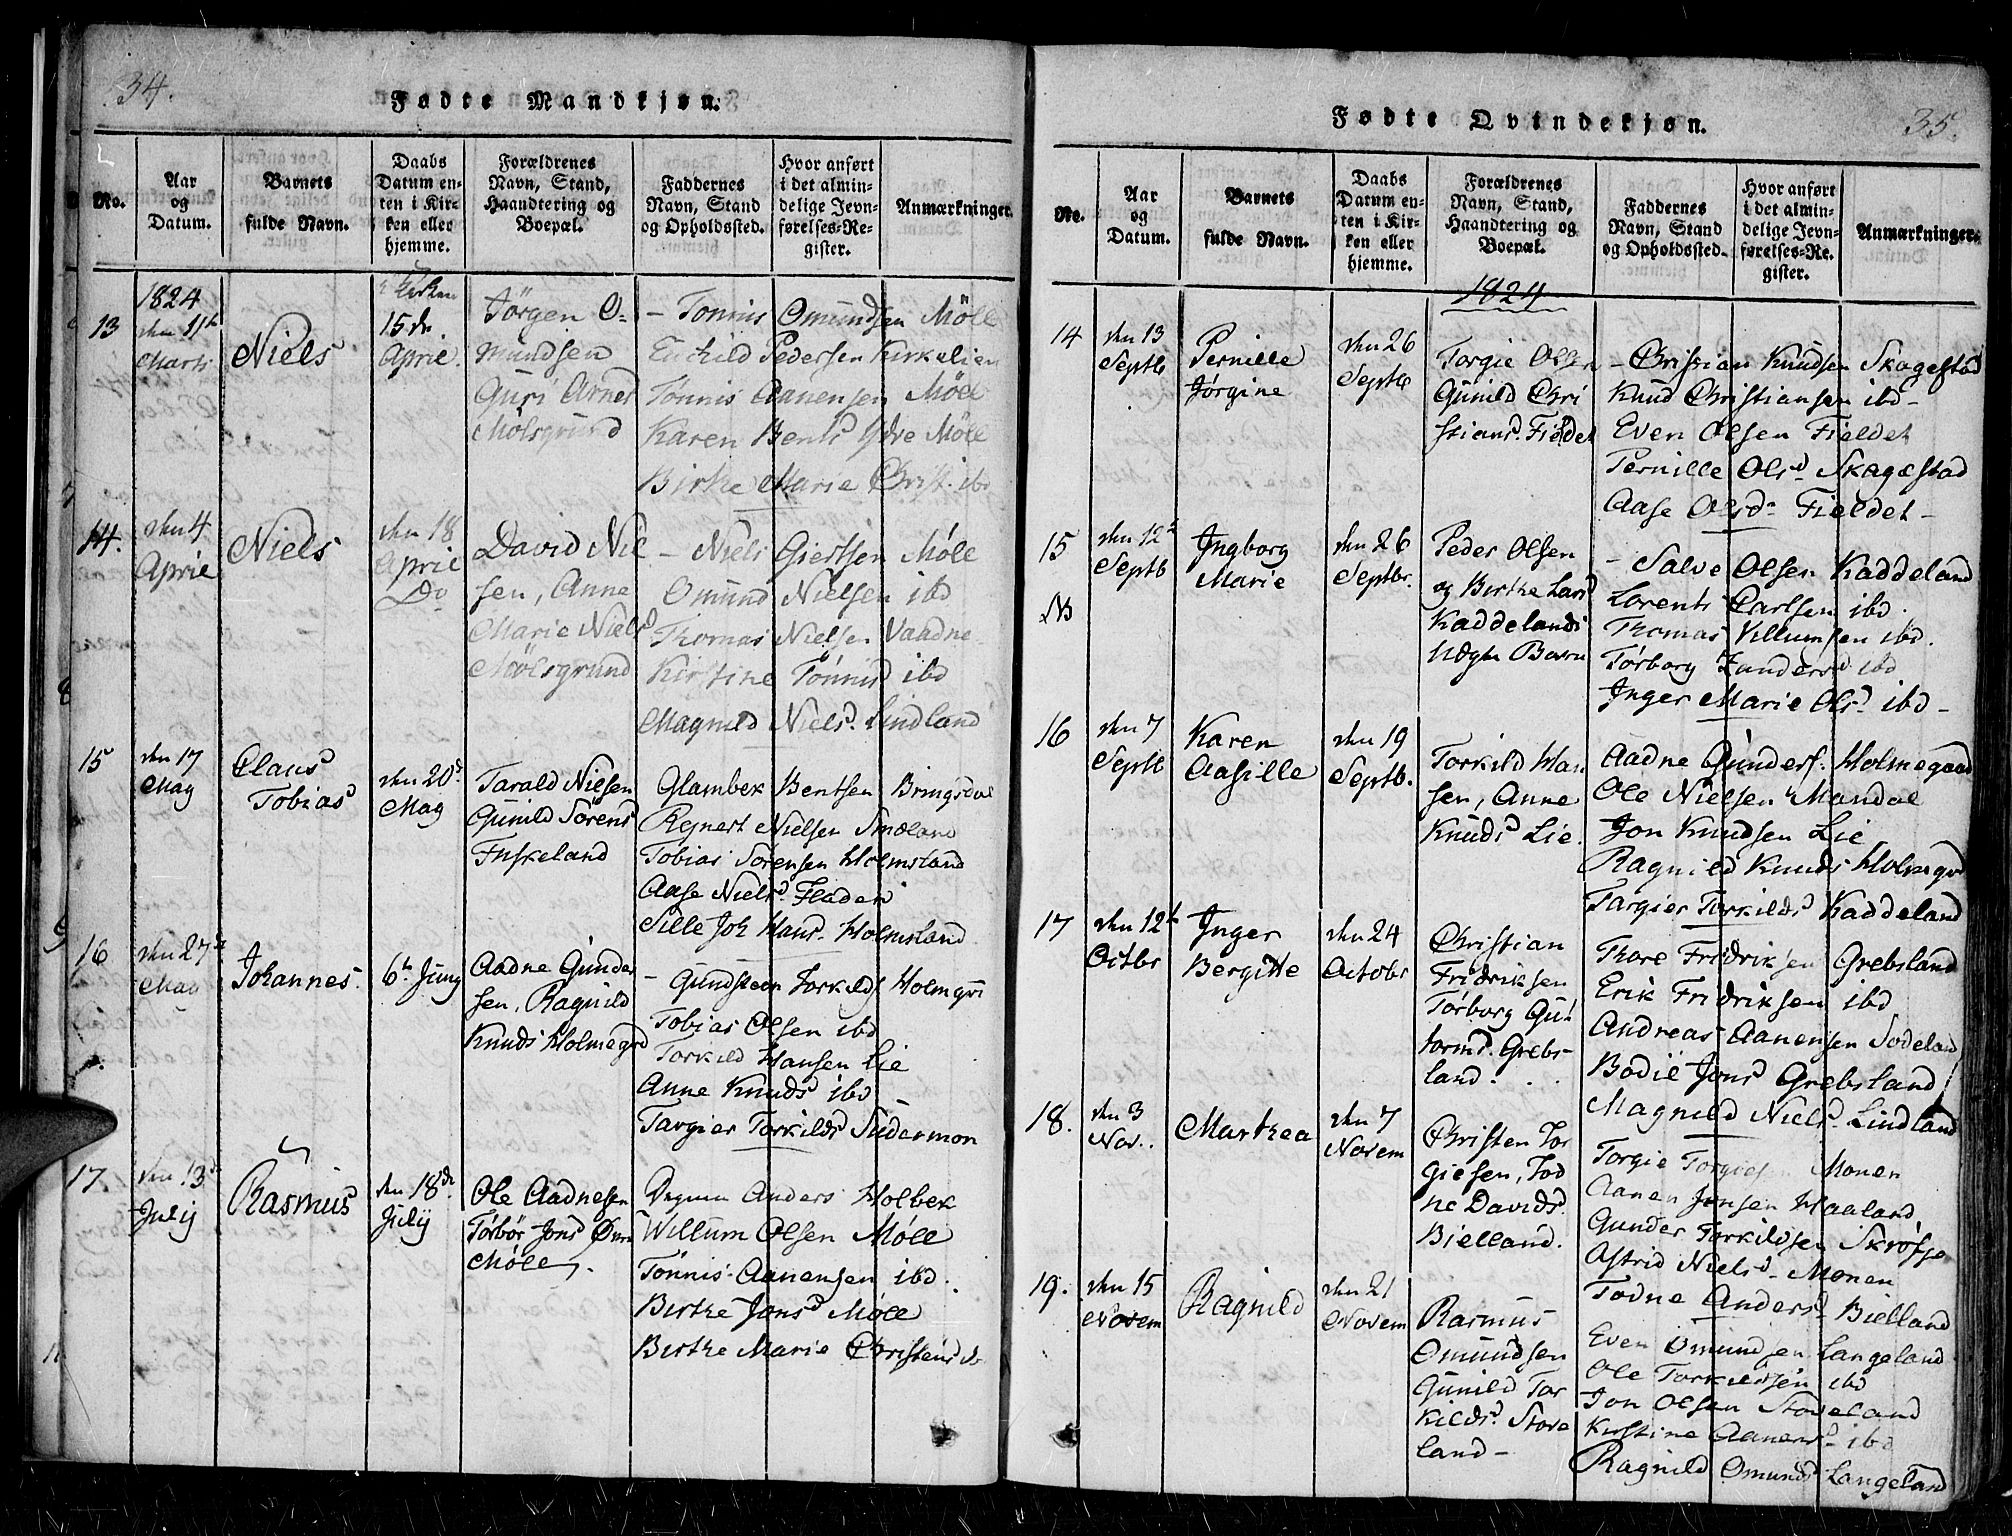 34.
Fødte Mandkjøn.
No.
Aar
og
Datum.
Barnets
fulde Navn.
Daabs
Datum en-
ten i Kir-
ken eller
hjemme.
Forældrenes
Navn, Stand,
Haandtering og
Boepæl.
Faddernes
Navn, Stand
og Opholdssted.
Hvor anført
i det almin-
delige Jevn-
førelses-Re-
gister.
Anmærkninger.
13
1824
den 11te
Marts
Niels
15de
April.
Jörgen O-
mundsen
Guri Arnesd
Mölsgrund
- Tönnis Omundsen Möll
Pedersen Kirkelien
Tönnis Aanensen Möll
Karen Bents Ydre Möll
Birthe Marie Christ. ibd
14.
den 4
April
Niels
den 18
April
Do
David Niel
sen, Anne
Marie Nielsd
Mölsgrund
- Niels Giertsen Möll
Omund Nielsen ibd
Thomas Nielsen Vaadne
Kirstine Tönnisd ibd
Magnild Nielsd. Lindland
15
den 17
May
Claus
Tobias
den 20de
May
Tarald Nielsen
Gunild Sörensd
Fuskeland
Glambek Bentsen Bringsdal
Rejnert Nielsen Smaland
Tobias Sörensen Holmsland
Aase Nielsd. Fladen
Sille Joh Hansd. Holmsland
16
den 27de
May
Johannes.
6te Juny
Aadne Gunder
sen, Ragnild
Knuds Holmegrd
- Gundsteen Torkilds Holmgrd
Tobias Olsen ibd
Torkild Hansen Lie
Anne Knudsd ibd
Targier Torkildsd Sudermon
17
den 13de
July
Rasmus
den 18de
July
Ole Aadnesen
Törbor Jonsd
Mölle.
Anders Holbek
Willum Olsen Möll
Tönnis Aanensen ibd.
Birthe Jonsd Möll
Birthe Marie Christensd do
35.
Fødte Qvindekjøn.
No.
Aar
og
Datum.
Barnets
fulde Navn.
Daabs
Datum en-
ten i Kir-
ken eller
hjemme.
Forældrenes
Navn, Stand,
Haandtering og
Boepæl.
Faddernes
Navn, Stand
og Opholdssted.
Hvor anført
i det almin-
delige Jevn-
førelses-Re-
gister.
Anmærkninger.
1824
14
den 13
Septb
Pernille
Jørgine
den 26
Septb
Torgie Olsen
Gunild Chri
stiansd. Fieldet
- Christian Knudsen Skagestad
Knud Christiansen ibd-
Even Olsen Fieldet
Pernille Olsd Skagestad
Aase Olsd- Fieldet-
15
NB
den 12te
Septb
Ingborg
Marie
den 26
Septbr.
Peder Olsen
og Birthe Larsd
Kaddelands
Uægte Barn
- Salve Olsen Kaddeland
Lorents Carlsen ibd.
Thomas Villumsen ibd.
Törborg Zandersd ibd
Inger Marie Olsd ibd-
16
den 7
Septb
Karen
Aasille
den 19
Septb.
Torkild Han
sen, Anne
Knudsd Lie.
Aadne Gunders. Holmegaard
Ole Nielsen Mandal
Jon Knudsen Lie
Ragnild Knuds Holmegrd
Targier Torkildsd Kaddeland
17
den 12te
Octbr
Inger
Bergitte
den 24
Octobr
Christian
Fridriksen
Törborg Gu-
tormsd. Grebs-
land.
Thore Fridriksen Grebsland
Erik Fridriksen ibd
Andreas Aanensen Sodeland
Bodil Jonsd Grebsland
Magnild Nielsd. Lindland
18.
den 3
Nov.
Marthea
den 7
Novem
Christen Tor
giesen, Tod
ne Davidsd.
Bielland.
Torgie Torgiesen Monen
Aanen Jensen Haaland
Gunder Torkildsen Skröfse
Astrid Nielsd- Monen
Todne Andersd- Bielland
19.
den 15
Novem
Ragnild
den 21
Novem
Rasmus
Omundsen
Gunild Tor
kildsd. Stove
land-
Even Omundsen Langeland
Ole Torkildsen ibd
Jon Olsen Stoveland
Kirstine Aanensd- ibd
Ragnild Omundsd Langeland